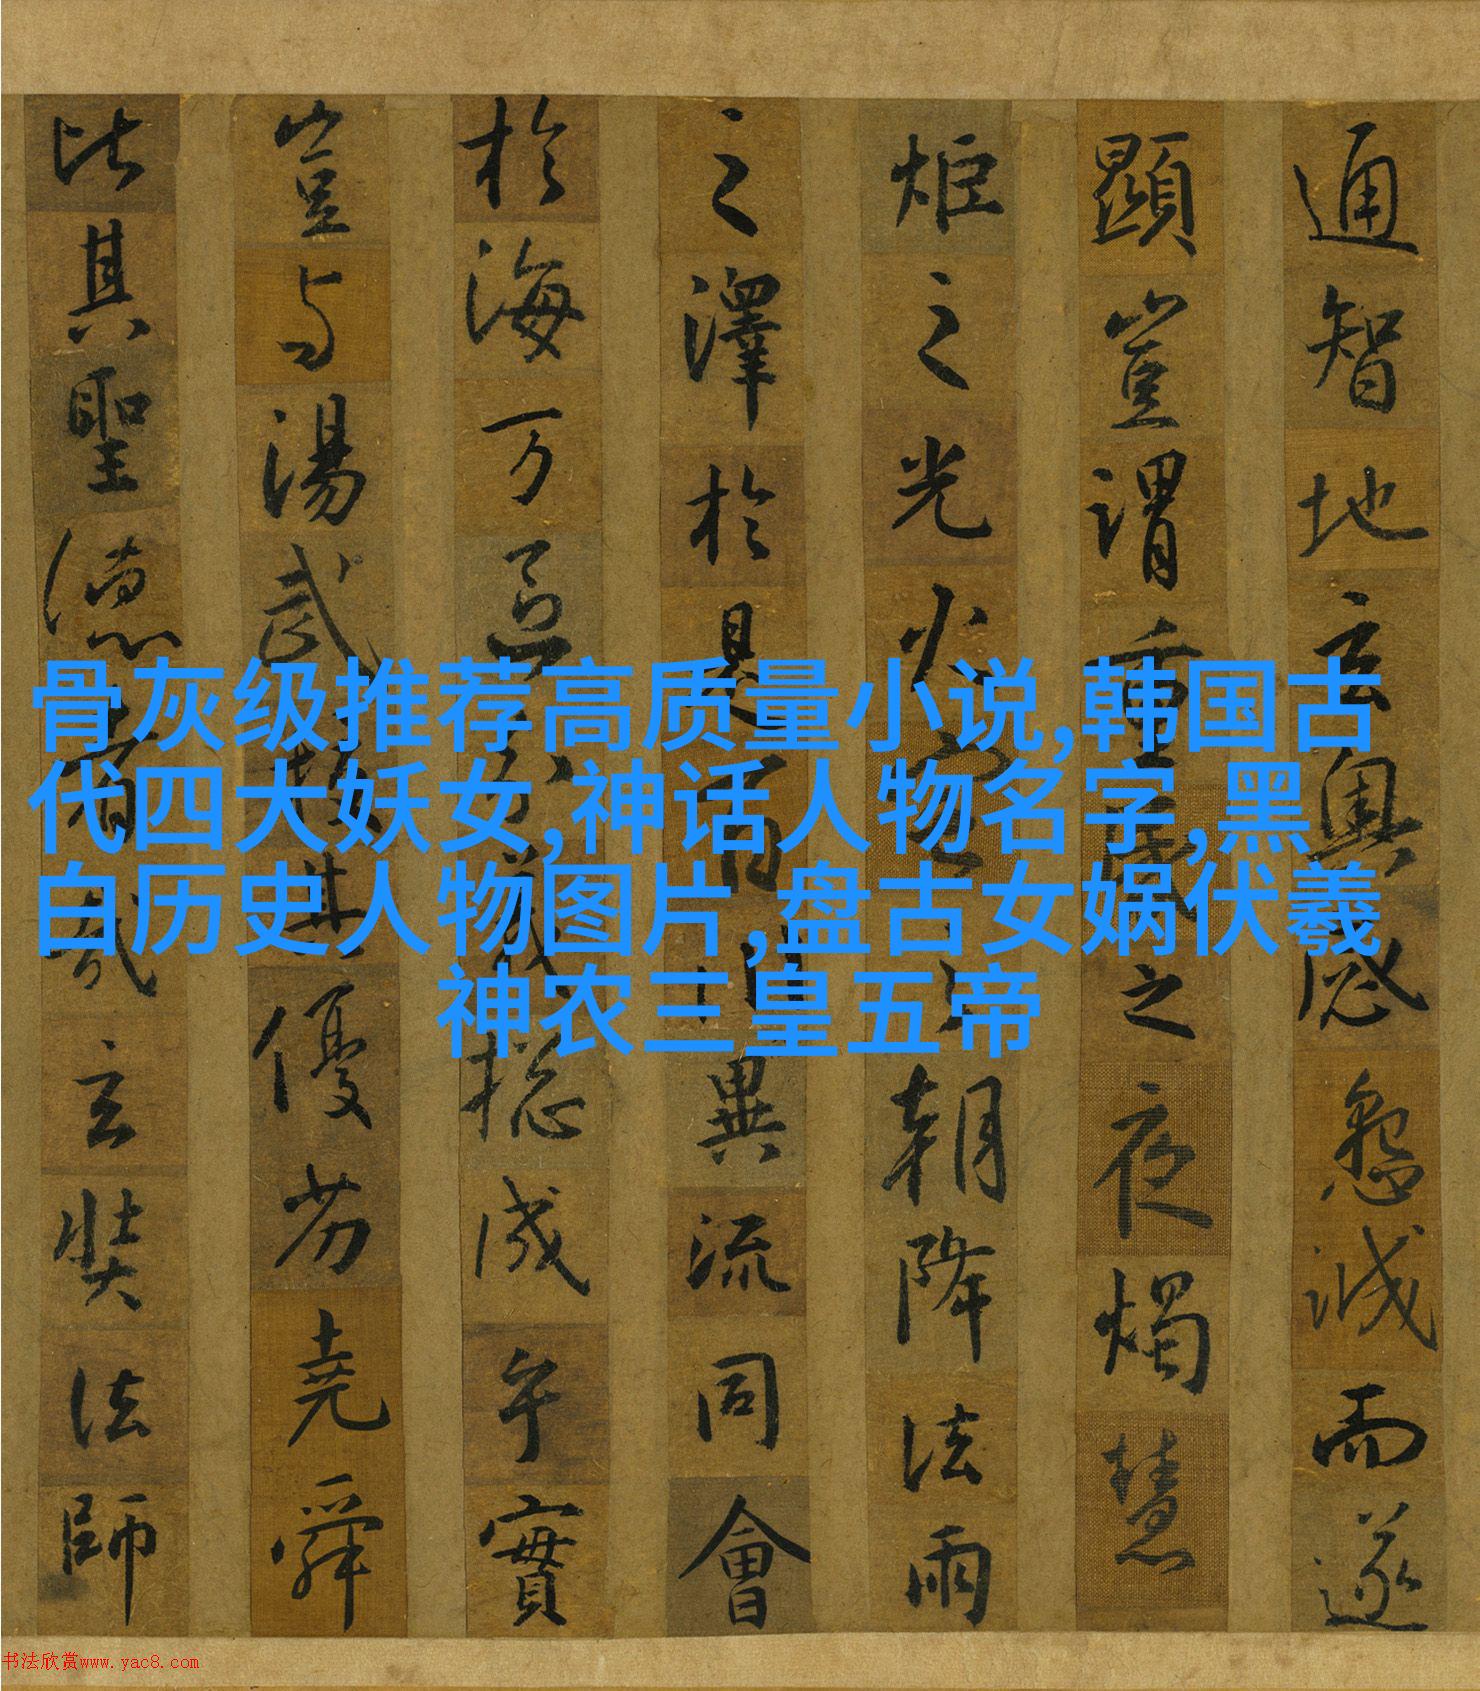 通智地玄奥感懇誠而遂
顯豈謂重昏之夜燭慧
炬之光火宅之朝降法雨
之澤於是百川異流同會
於海万區分義摠成乎實
豈与湯武校其優劣堯舜
比其聖德者哉玄奘法師
骨灰级推荐高质量小说,韩国古
代四大妖女,神话人物名字,黑
白历史人物图片,盘古女娲伏羲
神农三皇五帝
书法欣赏www.yac8.com